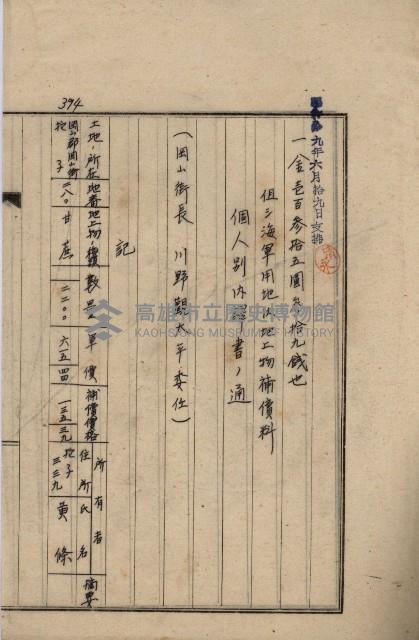 394
九年六月拾九日支拂
一金壱百参拾五圓参拾九銭也
但シ海軍用地内地上物補償料
個人別内譯書ノ通
(岡山街長 川野 太平委任)
記
土地ノ所在 地番 地上物ノ種類 數量 單價 補償價格 所有者 住所 氏名 摘要
岡山郡岡山街 挖子 二八〇 甘蔗 二二〇〇 六五四四 一三五三九 挖子 三三九 黄條
高雄市立歷史博物館
KAOHSIUNG MUSEUM OF HISTORY